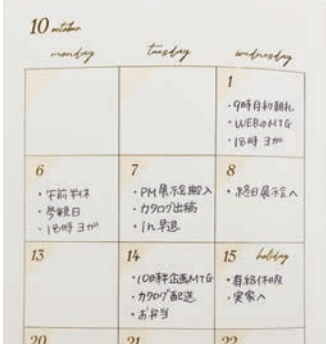 10 october
monday tuesday wednesday
1
・9時月初朝礼
・WEBのMTG
・18時 ヨガ
6 7 8
・午前半休
・参観日
・18時 ヨガ
・PM 展示会搬入
・カタログ出稿
・in 早退
・終日展示会へ
13 14 15 holiday
・10時半企画MTG
・カタログ配送
・お弁当
・有給休暇
・実家へ
20 21 22